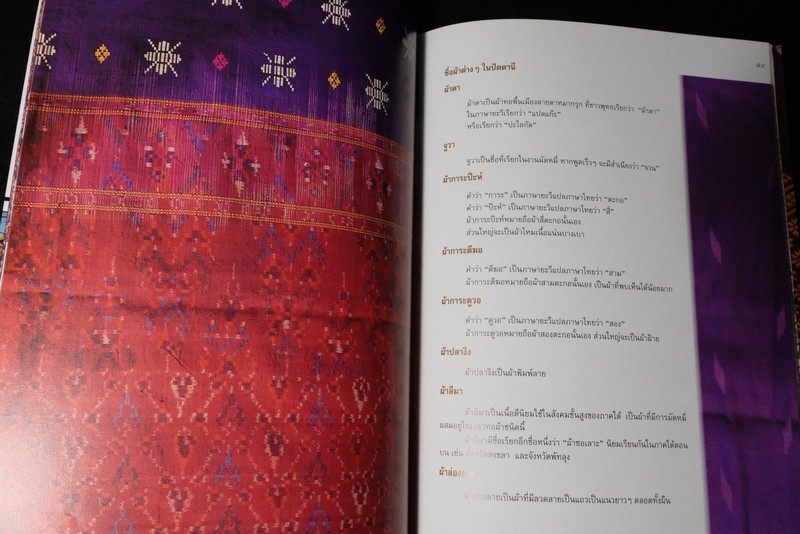 ชื่อผ้าต่าง ๆ ในปัตตานี
ผ้าตา
ผ้าตาเป็นผ้าทอพื้นเมืองลายตาหมากรุก ที่ชาวพุทธเรียกว่า “ผ้าตา”
ในภาษายะวีเรียกว่า “แปลแก๊ะ”
หรือเรียกว่า “ปะไลกัด”
จูวา
จูวาเป็นชื่อที่เรียกในงานมัดหมี่ หากพูดเร็วๆ จะมีสำเนียงว่า “จวน”
ผ้าการะป๊ะห์
คำว่า “การะ” เป็นภาษายะวีแปลภาษาไทยว่า “ตะกอ”
คำว่า “ป๊ะห์” เป็นภาษายะวีแปลภาษาไทยว่า “สี่”
ผ้าการะป๊ะห์หมายถือผ้าสี่ตะกอนั้นเอง
ส่วนใหญ่จะเป็นผ้าไหมเนื้อแน่นบางเบา
ผ้าการะตีฆอ
คำว่า “ตีฆอ” เป็นภาษายะวีแปลภาษาไทยว่า “สาม”
ผ้าการะตีฆอหมายถือผ้าสามตะกอนั้นเอง เป็นผ้าที่พบเห็นได้น้อยมาก
ผ้าการะดูวอ
คำว่า “ดูวอ” เป็นภาษายะวีแปลภาษาไทยว่า “สอง”
ผ้าการะดูวอหมายถือผ้าสองตะกอนั้นเอง ส่วนใหญ่จะเป็นผ้าฝ้าย
ผ้าปลางิง
ผ้าปลางิงเป็นผ้าพิมพ์ลาย
ผ้าลีมา
ผ้าลีมาเป็นเนื้อดีนิยมใช้ในสังคมชั้นสูงของภาคใต้ เป็นผ้าที่มีการมัดหมี่
ผสมอยู่ในเวลาทอผ้าชนิดนี้
ผ้าลีมามีชื่อเรียกอีกชื่อหนึ่งว่า “ผ้าซอเลาะ” นิยมเรียกันกันในภาคใต้ตอน
บน เช่น จังหวัดสงขลา และจังหวัดพัทลุง
ผ้าล่อง
เป็นผ้าที่มีลวดลายเป็นแถวเป็นแนวยาวๆ ตลอดทั้งผืน